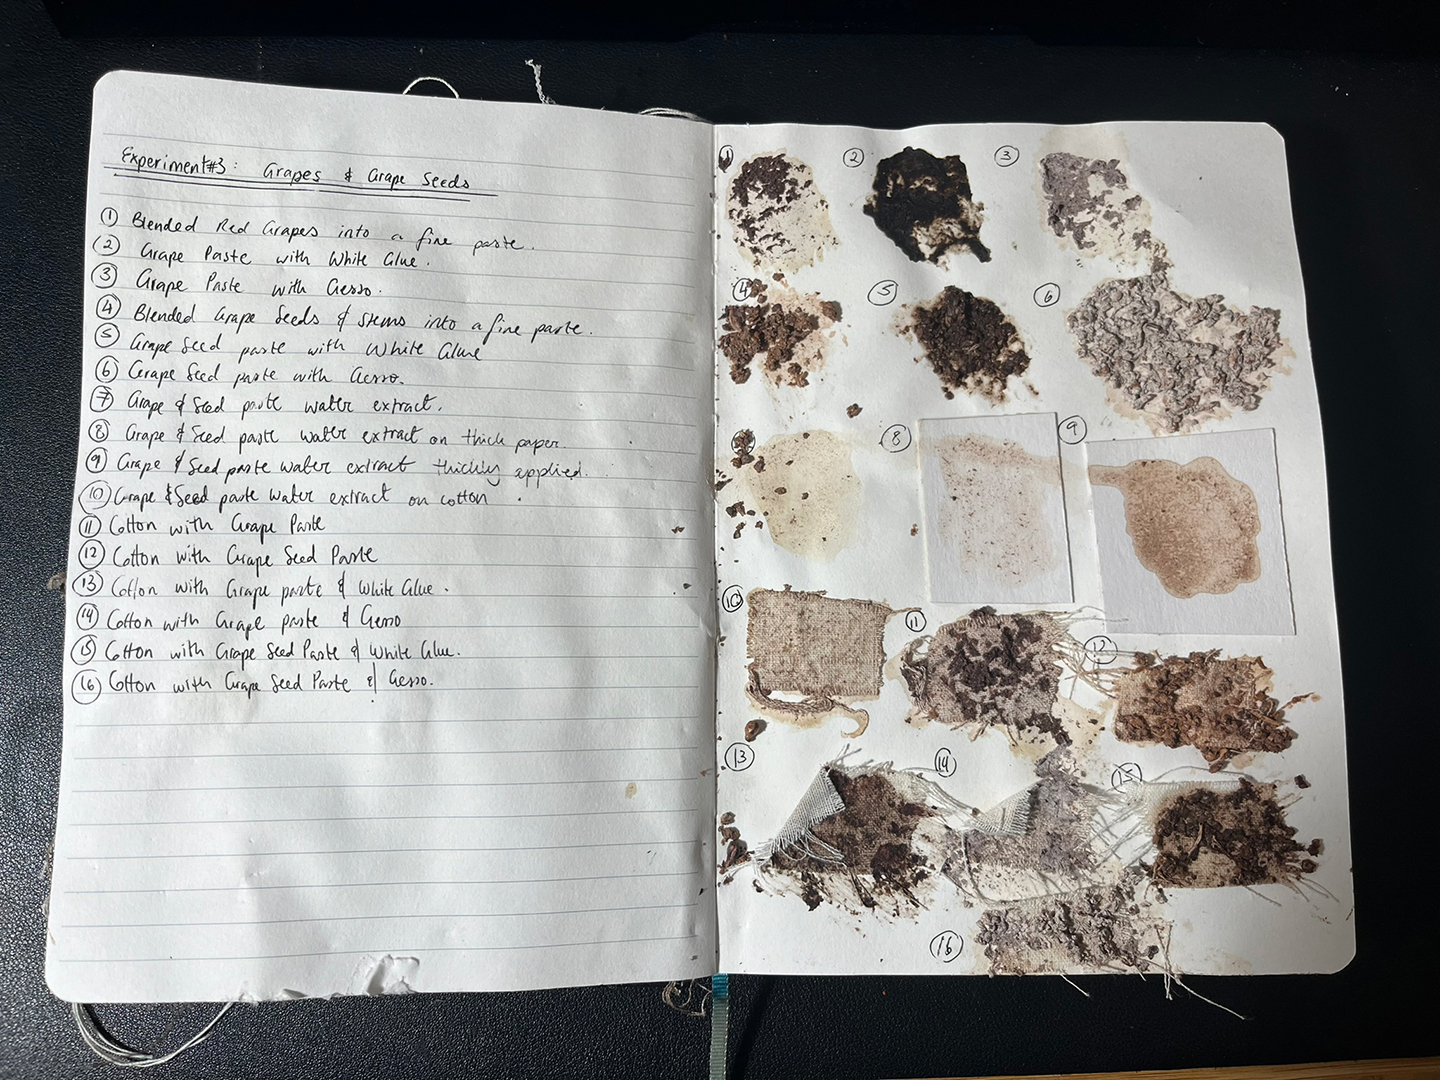 Experiment #3: Grapes & Grape Seeds
① Blended Red Grapes into a fine paste.
② Grape Paste with White Glue.
③ Grape Paste with Gesso.
④ Blended Grape Seeds & stems into a fine paste.
⑤ Grape Seed paste with White Glue
⑥ Grape Seed paste with Gesso.
⑦ Grape & Seed paste water extract.
⑧ Grape & Seed paste water extract on thick paper.
⑨ Grape & Seed paste water extract thickly applied.
⑩ Grape & Seed paste water extract on cotton.
⑪ Cotton with Grape Paste
⑫ Cotton with Grape Seed Paste
⑬ Cotton with Grape paste & White Glue.
⑭ Cotton with Grape paste & Gesso
⑮ Cotton with Grape Seed Paste & White Glue.
⑯ Cotton with Grape Seed Paste & Gesso.
① ② ③
④ ⑤ ⑥
⑧ ⑨
⑩ ⑪ ⑫
⑬ ⑭ ⑮
⑯